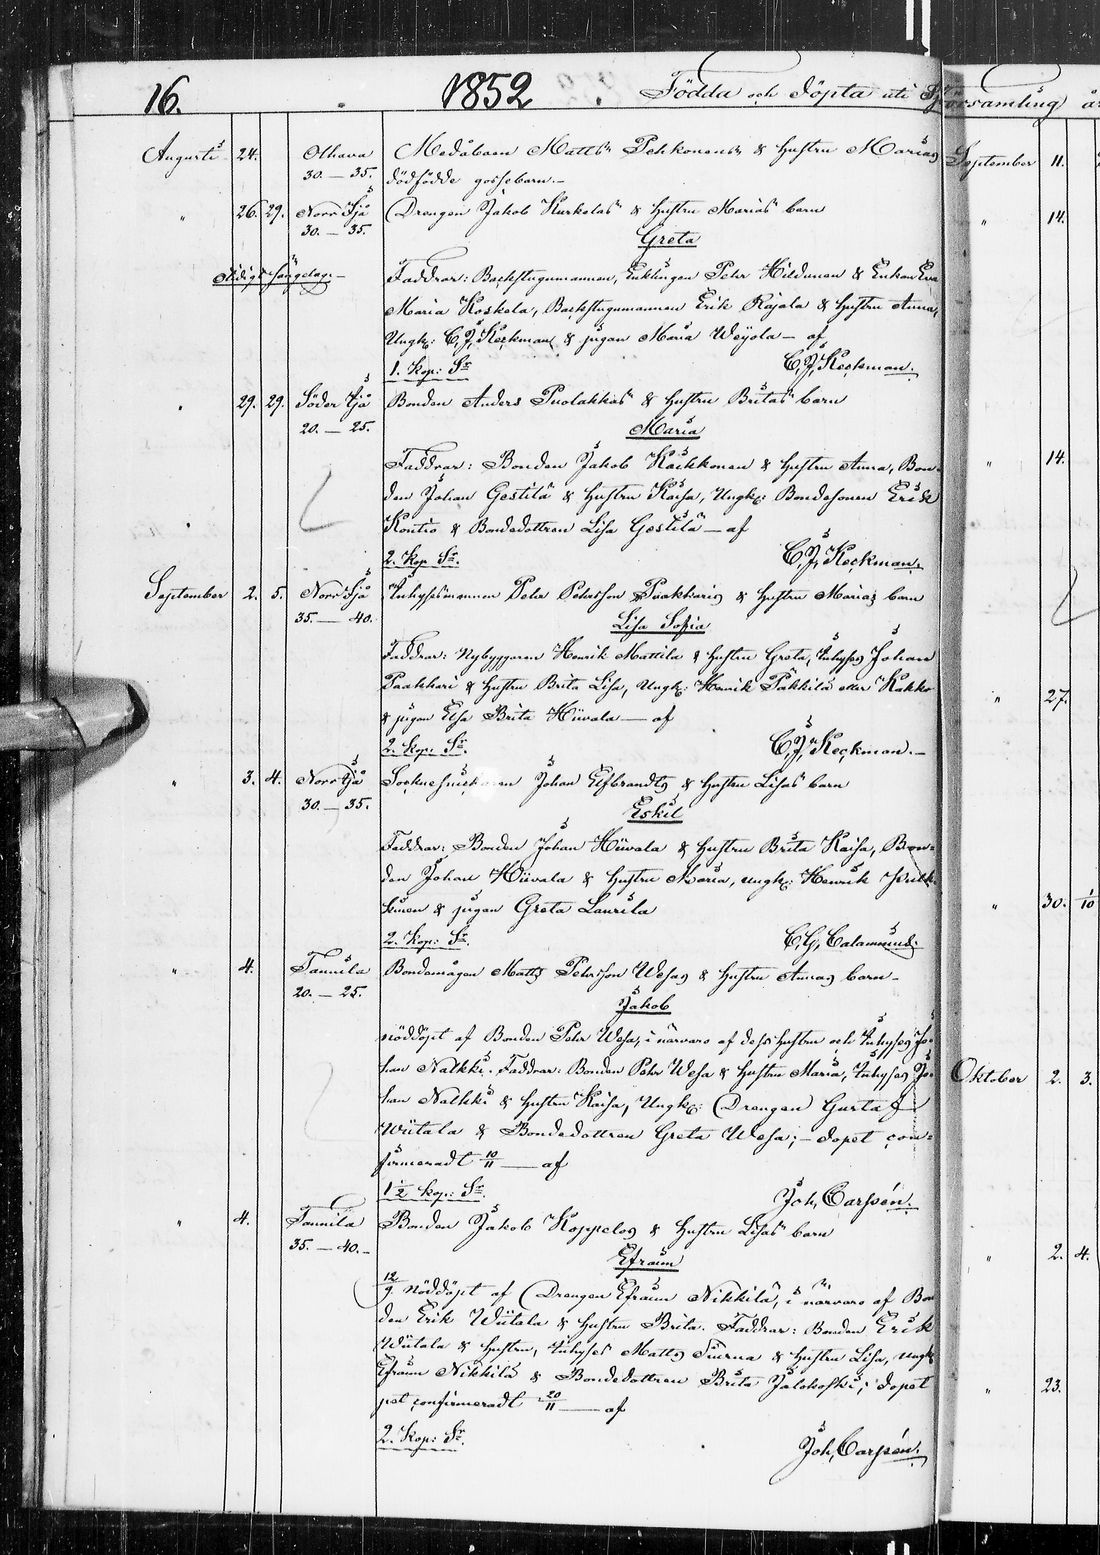 16. 1852 Födda och Döpta uti
församling år
Augusti 24. Olhava Medåboen Matts Pehkonens & hustru Marias
30.–35. dödfödde gossebarn.–
" 26. 29. Norr Ijå Drengen Jakob Kurkelas & hustru Marias barn
30.–35.
Greta
Faddrar: Backstugumannen, Enklingen Pehr Hildunen & Enkan Eva
Maria Koskela, Backstugumannen Erik Rajala & hustru Anna,
Ungk: C. J. Keckman & pigan Maria Weijola – af
1. kop: Sr C. J. Keckman.
" 29. 29. Söder Ijå Bonden Anders Puolakkas & hustru Britas barn
20.–25.
Maria
Faddrar: Bonden Jakob Kaikkonen & hustru Anna, Bon-
den Johan Gestilä & hustru Kaisa, Ungk: Bondesonen Erik
Kontio & Bondedottren Lisa Gestilä – af
2. kop Sr. C. J. Keckman.
September 2. 5. Norr Ijå Inhysesmannen Pehr Pehrsson Paakkaris & hustru Marias barn
35.–40.
Lisa Sofia
Faddrar: Nybyggaren Henrik Mattila & hustru Greta, Inhyses Johan
Paakkari & hustru Brita Lisa, Ungk: Henrik Päkkilä eller Kakko
& pigan Elsa Brita Hiivala – af
2. kop: Sr. C. J. Keckman.–
" 3. 4. Norr Ijå Sockneskräddaren Johan Elfbrandts & hustru Lisas barn
30.–35.
Eskil
Faddrar: Bonden Johan Hiivala & hustru Brita Kaisa, Bon-
den Johan Hiivala & hustru Maria, ungk: Henrik
& pigan Greta Laurila
2. kop: Sr. C. G. Calamnius.
" 4. Tannila Bondemågen Matts Pehrsson Wesas & hustru Annas barn–
20.–25.
Jakob
nöddöpt af Bonden Pehr Wesa, i närvaro af dess hustru och Inhyses Jo-
han Nalkki. Faddrar: Bonden Pehr Wesa & hustru Maria, Inhyses Jo-
han Nalkki & hustru Kaisa, Ungk: Drengen Gustaf
Wiitala & Bondedottren Greta Wesa; – dopet con-
firmeradt 10/11 – af
1 1/2 kop: Sr. Joh. Carpén.
" 4. Tannila Bonden Jakob Koppelos & hustru Lisas barn
35.–40.–
Efraim
12/9 Nöddöpt af Drengen Efraim Nikkilä, i närvaro af Bon
den Erik Wiitala & hustru Brita. Faddrar: Bonden Erik
Wiitala & hustru, Inhyses Matts Tiurna & hustru Lisa, ungk
Efraim Nikkilä & Bondedottren Brita Jalokoski; dopet
pet confirmeradt 20/11 – af
2. kop: Sr. Joh. Carpén.
September 11.
" 14.
" 14.
" 27.
" 30. 1/10
Oktober 2. 3.
" 2. 4.
" 23.